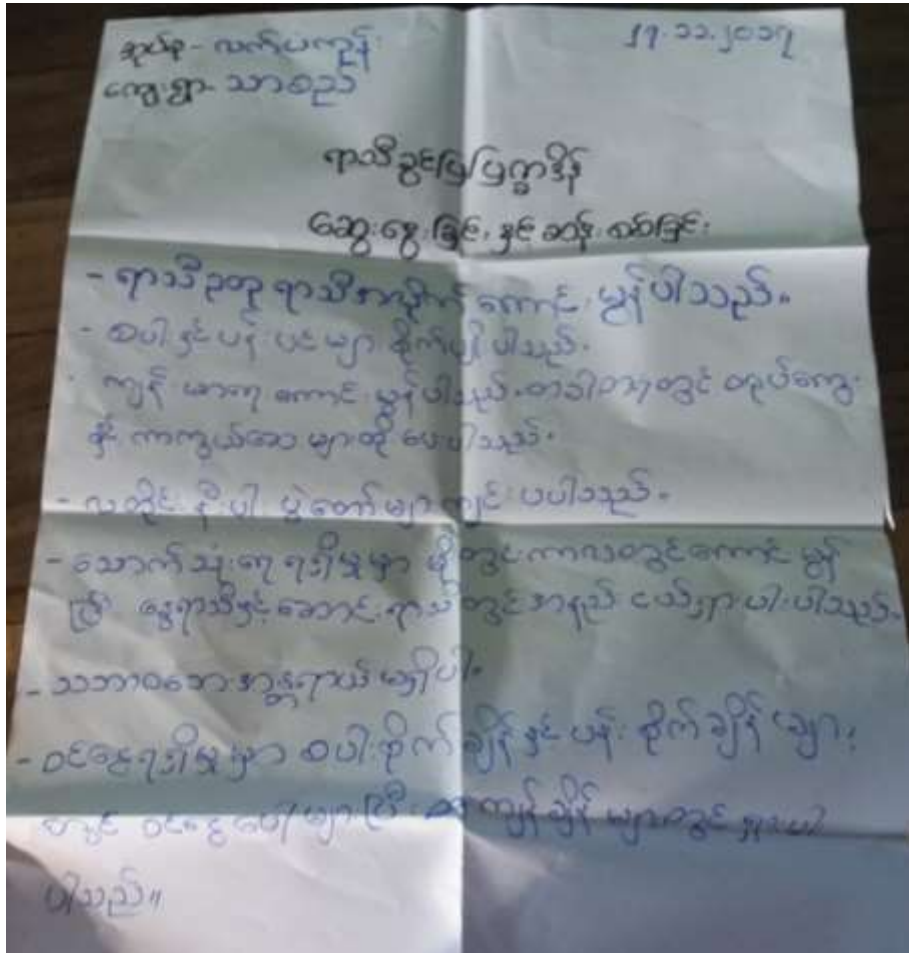 အုပ်စု - လက်ပကုန်း ၂၇.၁၁.၂၀၁၇
ကျေးရွာ - သာစည်
ရာသီခွင်ပြပြက္ခဒိန်
ဆွေးနွေးခြင်း နှင့် ဆန်းစစ်ခြင်း
- ရာသီဥတု ရာသီအလိုက် ကောင်းမွန်ပါသည်။
- စပါးနှင့် ပန်းပင်များ စိုက်ပျိုးပါသည်။
ကျန်းမာရေး ကောင်းမွန်ပါသည်။ တခါတရံတွင် တုပ်ကွေး
နှင့် ကာကွယ်ဆေးများထိုးပေးပါသည်။
- လတိုင်းနီးပါး ပွဲတော်များ ကျင်းပပါသည်။
- သောက်သုံးရေရရှိမှုမှာ မိုးတွင်းကာလတွင်ကောင်းမွန်
ပြီး နွေရာသီနှင့်ဆောင်းရာသီတွင်အနည်းငယ်ရှားပါးပါသည်။
- သဘာဝဘေးအန္တရာယ် မရှိပါ။
- ဝင်ငွေရရှိမှုမှာ စပါးစိုက်ချိန်နှင့် ပန်းစိုက်ချိန်များ
တွင် ဝင်ငွေပေါများပြီး ကျန်ချိန်များတွင် ရှားပါး
ပါသည်။